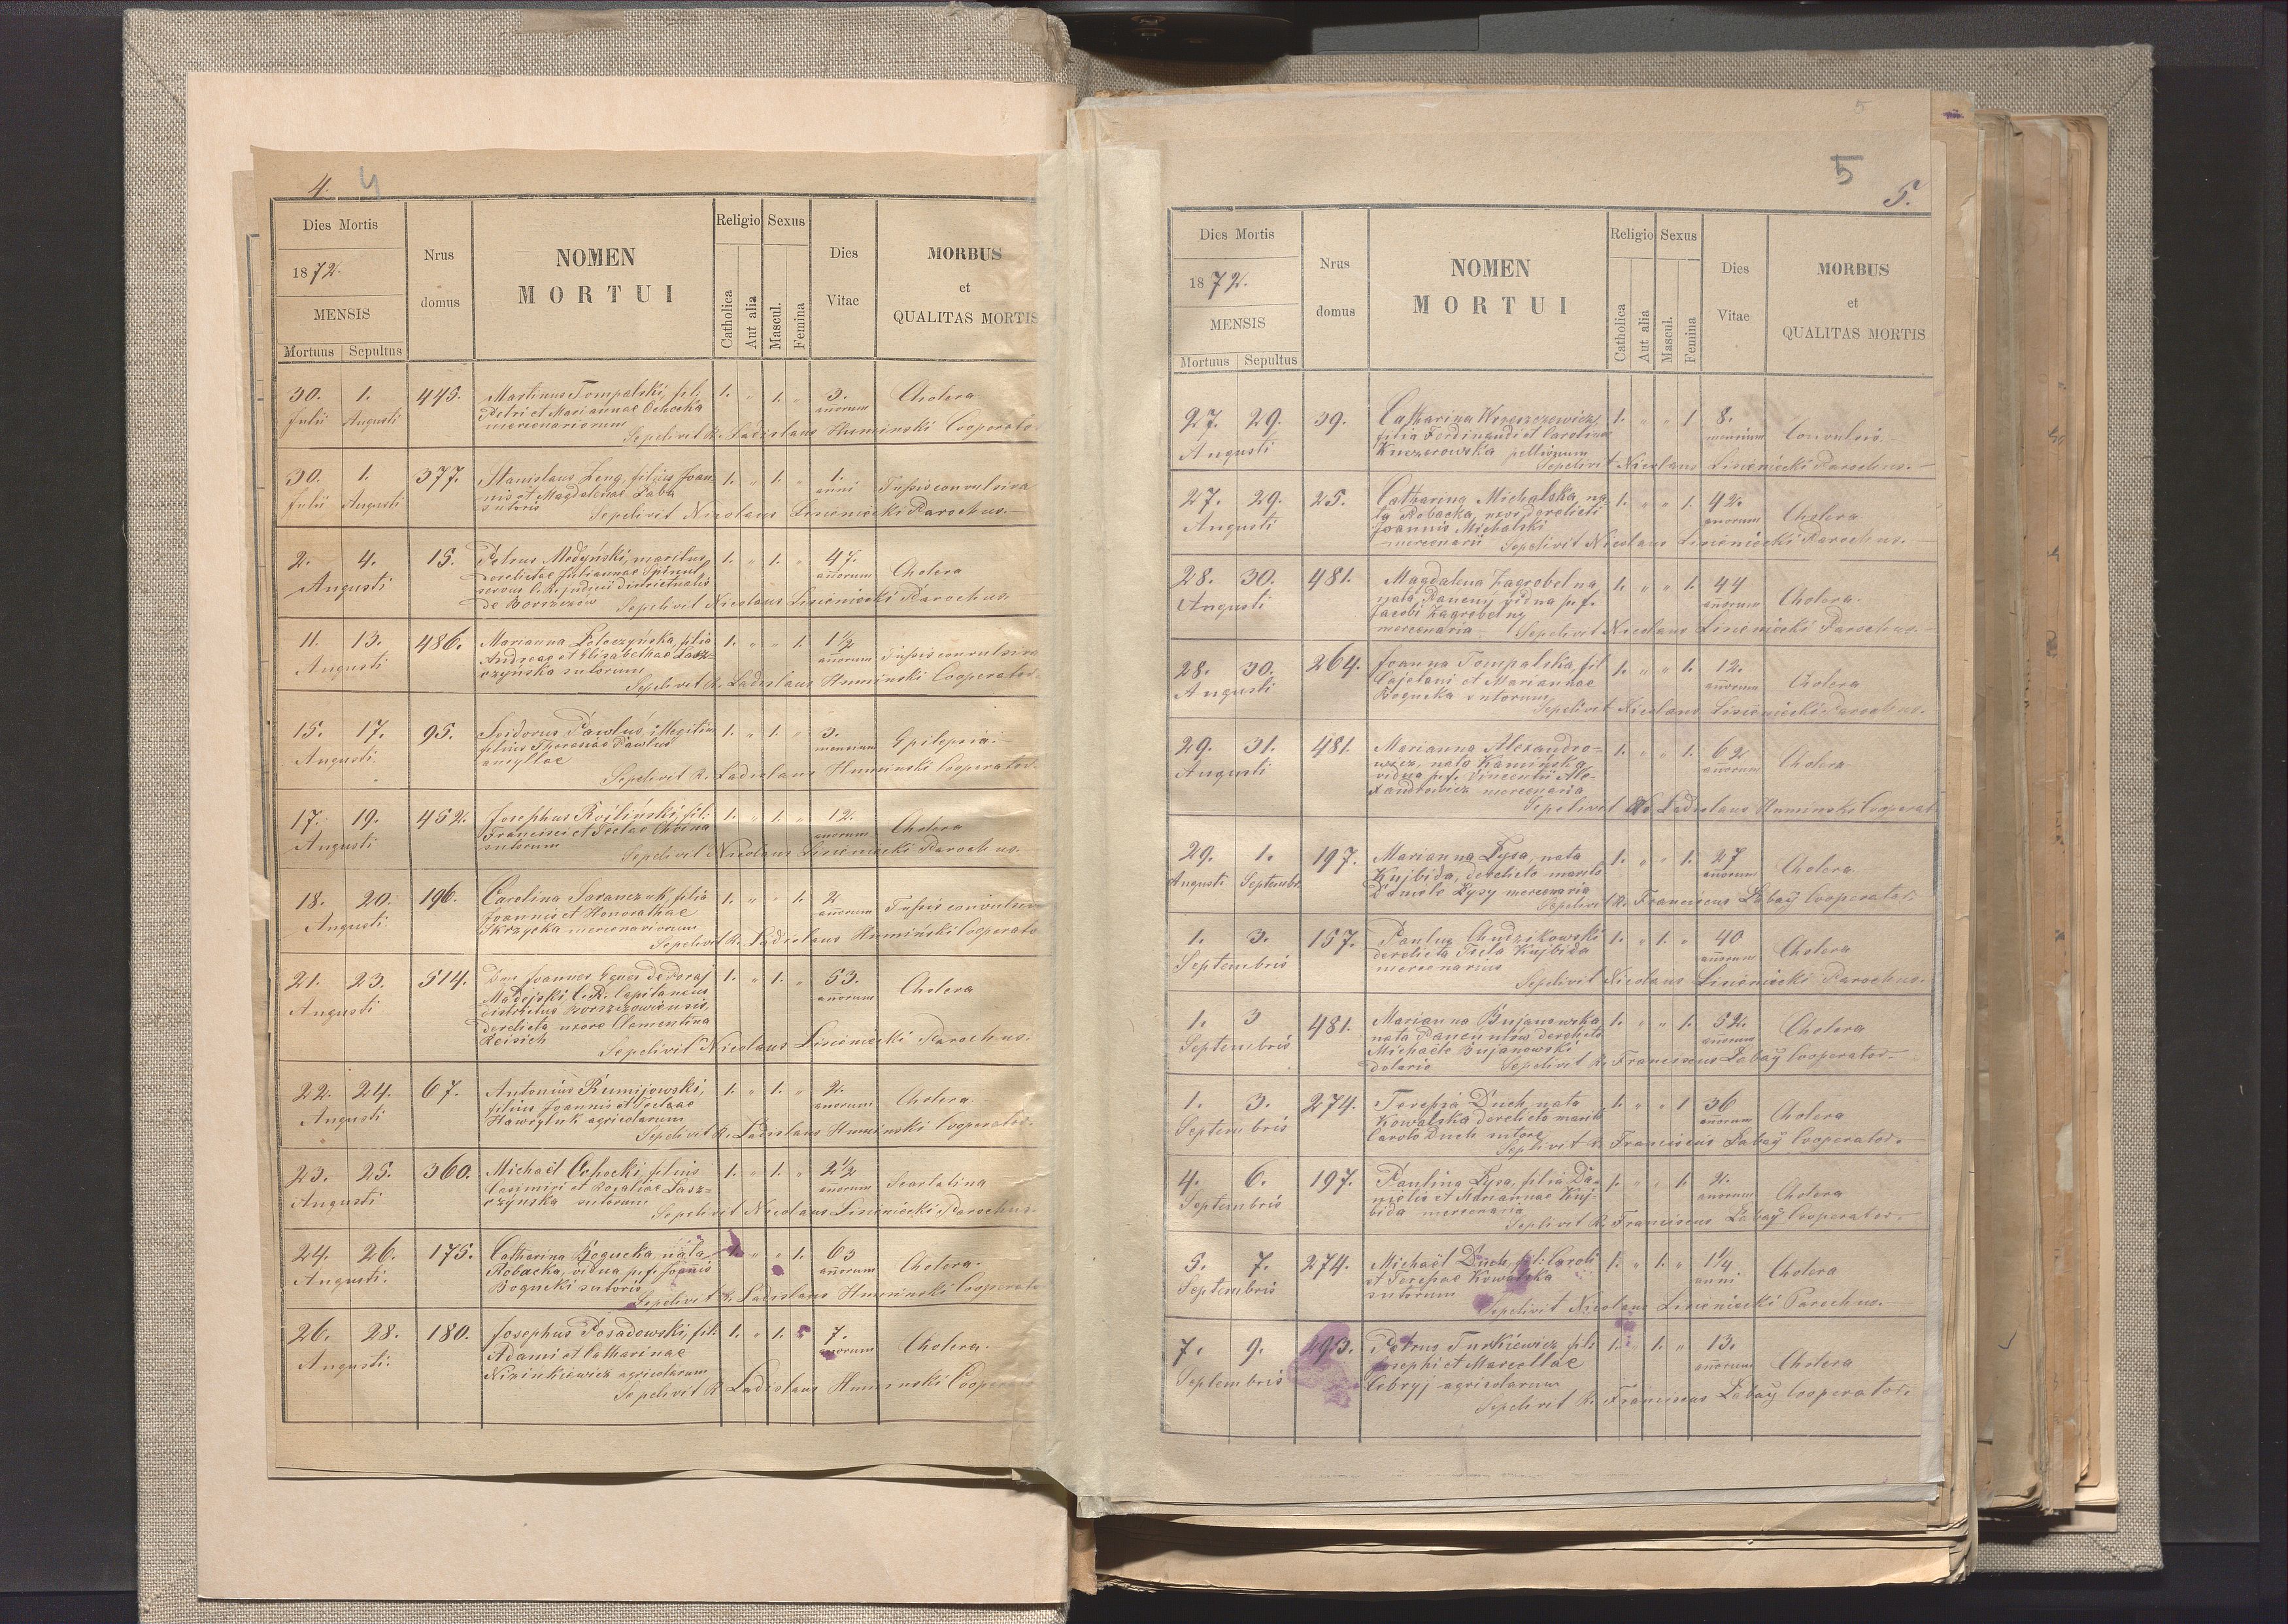 4. 4
Dies Mortis
1872.
MENSIS
Mortuus Sepultus
Nrus domus
NOMEN
MORTUI
Religio
Catholica
Aut alia
Sexus
Mascul.
Femina
Dies
Vitae
MORBUS
et
QUALITAS MORTIS
30. 1. 445. Martinus Tompalski, fil: 1. " 1. " 3. Cholera
Julii Augusti Petri et Mariannae Ochocka anorum
mercenariorum
Sepelivit R. Ladislaus Huminski Cooperato
30. 1. 377. Stanislaus Leng, filius Joan 1. " 1. " 1. Tussis convulsiva
Julii Augusti nis et Magdalenae Baba anni
sutoris
Sepelivit Nicolaus Lisieniecki Parochus.
2. 4. 15. Petrus Medyński, maritus 1. " 1. " 47. Cholera
Augusti derelictae Juliannae anorum
servus C.R. judicii districtualis
de Borszczów Sepelivit Nicolaus Lisieniecki Parochus.
11. 13. 486. Marianna filia 1. " " 1. 1½ Tussis convulsiva
Augusti Andreae et Elisabethae Łasz= anorum
czyńska sutorum
Sepelivit R. Ladislaus Huminski Cooperator.
15. 17. 95. Isidorus Pawluś, illegitim 1. " 1. " 3. Epilepsia.
Augusti filius Theresiae Pawluś mensium
ancyllae
Sepelivit R. Ladislaus Huminski Cooperator.
17. 19. 452. Josephus fil: 1. " 1. " 12. Cholera
Augusti Francisci et Teclae Choina anorum
sutorum
Sepelivit Nicolaus Lisieniecki Parochus.
18. 20. 196. Carolina Saranczuk, filia 1. " " 1. 2 Tussis convulsiv
Augusti Joannis et Honorathae anorum
Skrzycka mercenariorum
Sepelivit R. Ladislaus Humiński Cooperato
21. 23. 514. Joannes de Poraj 1. " 1. " 53. Cholera
Augusti Madejski C.R. Capitaneus anorum
districtus Borszczowiensis,
derelicta uxore Clementina
Reisich
Sepelivit Nicolaus Lisieniecki Parochus.
22. 24. 67. Antonius Rumijowski, 1. " 1. " 2. Cholera
Augusti filius Joannis et Teclae anorum
Hawryluk agricolarum
Sepelivit R. Ladislaus Huminski Cooperator.
23. 25. 360. Michaël Ochocki, filius 1. " 1. " 2½ Scarlatina
Augusti Casimiri et Rosaliae Łasz= anorum
czyńska sutorum
Sepelivit Nicolaus Lisieniecki Parochus.
24. 26. 175. Catharina Bogucka, nata 1. " " 1. 63 Cholera.
Augusti. Robacka, vidua p.f. Joannis anorum
Bogucki sutoris
Sepelivit R. Ladislaus Huminski Cooperato
26. 28. 180. Josephus Posadowski, fil: 1. " 1. 7. Cholera.
Augusti. Adami et Catharinae anorum
agricolarum
Sepelivit R. Ladislaus Huminski Cooper
5
5
5.
Dies Mortis
1872.
MENSIS
Mortuus Sepultus
Nrus domus
NOMEN
MORTUI
Religio
Catholica
Aut alia
Sexus
Mascul.
Femina
Dies
Vitae
MORBUS
et
QUALITAS MORTIS
27. 29. 39. Catharina 1. " " 1 8. Convulsis.
Augusti filia Ferdinandi et Carolinae mensium
pellionum
Sepelivit Nicolaus Lisieniecki Parochus.
27. 29. 25. Catharina Michalska na 1. " " 1. 42. Cholera
Augusti ta Robacka, uxor derelicti anorum
Joannis Michalski
mercenarii Sepelivit Nicolaus Lisieniecki Parochus.
28. 30. 481. Magdalena Zagrobelna 1. " " 1. 44 Cholera.
Augusti nata vidua p.f. anorum
Jacobi Zagrobelny
mercenaria Sepelivit Nicolaus Lisieniecki Parochus.
28. 30. 264. Joanna Tompalska, fil 1. " " 1. 12. Cholera
Augusti Cajetani et Mariannae anorum
Bogucka sutorum
Sepelivit Nicolaus Lisieniecki Parochus.
29. 31. 481. Marianna Alexandro= 1. " " 1. 62 Cholera
Augusti wicz, nata Kamińska anorum
vidua p.f. Vincentii Ale=
xandrowicz mercenaria
Sepelivit Ladislaus Huminski Cooperat
29. 1. 197. Marianna Łysa, nata 1. " " 1. 27 Cholera.
Augusti Septembr. Kujbida, derelicto marito anorum
Daniele Łysy mercenaria
Sepelivit R. Franciscus Łabaÿ Cooperator.
1. 3. 157. Paulus Chudzikowski 1. " 1. " 40 Cholera
Septembris derelicta Tecla Kujbida anorum
mercenarius
Sepelivit Nicolaus Lisieniecki Parochus.
1. 3 481. Marianna Bujanowska 1. " " 1. 52. Cholera
Septembris nata derelicto anorum
Michaële Bujanowski
dolario Sepelivit R. Franciscus Łabaÿ Cooperator.
1. 3. 274. Teresia Duch nata 1. " " 1 36 Cholera
Septembris Kowalska derelicto marito anorum
Carolo Duch sutore
Sepelivit R. Franciscus Łabaÿ Cooperator.
4. 6. 197. Paulina Łysa, filia Da= 1. " " 1. 2. Cholera
Septembris nielis et Mariannae Kuj= anorum
bida mercenaria
Sepelivit R. Franciscus Łabaÿ Cooperator.
5. 7. 274. Michaël Duch, fil: Caroli 1. " 1. " 1¼ Cholera
Septembris et Teresiae Kowalska anni
sutorum
Sepelivit Nicolaus Lisieniecki Parochus.
7. 9. 293. Petrus Turkiewicz fil: 1. " 1. " 13. Cholera
Septembris Josephi et Marcellae anorum
Cebryj agricolarum
Sepelivit R. Franciscus Łabaÿ Cooperator.